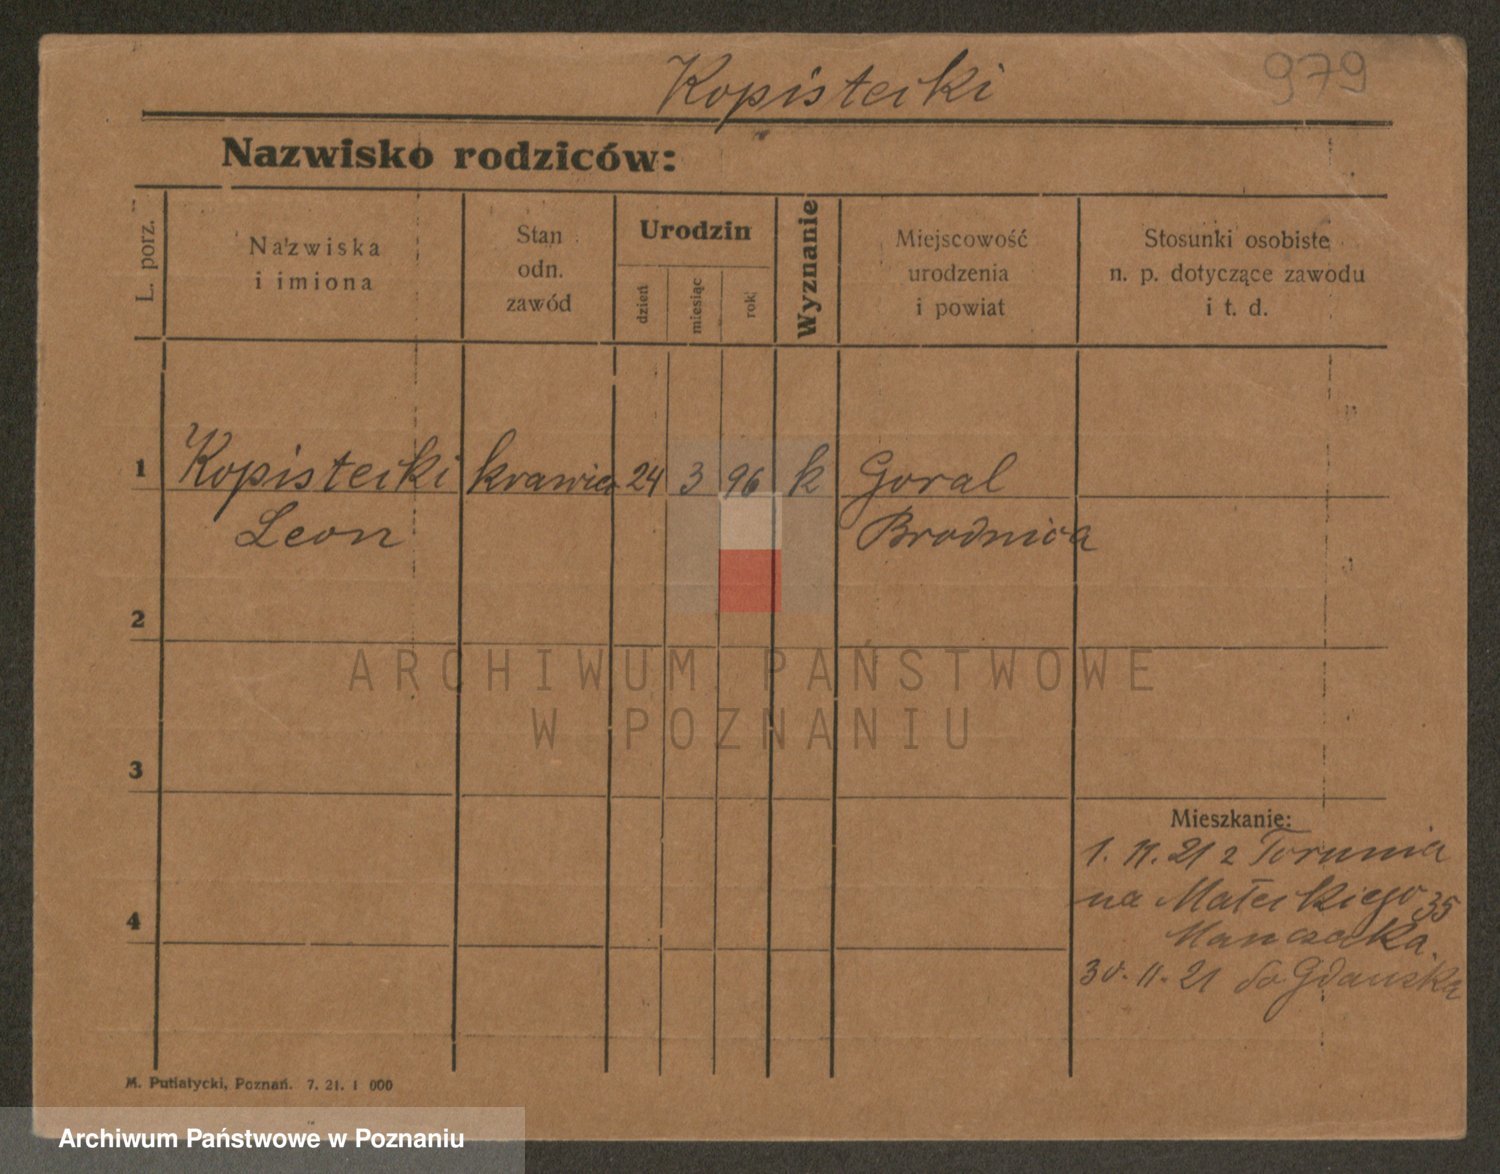 Kopistecki 979
Nazwisko rodziców:
L. porz.
Nazwiska
i imiona
Stan
odn.
zawód
Urodzin
dzień
miesiąc
rok
Wyznanie
Miejscowość
urodzenia
i powiat
Stosunki osobiste
n. p. dotyczące zawodu
i t. d.
1 Kopistecki krawiec 24 3 96 k Goral
Leon Brodnica
2
3
4
Mieszkanie:
1. 11. 21 z Torunia
na Małeckiego 35
Manczaka.
30. 11. 21 do Gdańska
M. Putiatycki, Poznań. 7. 21. 1 000
ARCHIWUM PAŃSTWOWE
W POZNANIU
Archiwum Państwowe w Poznaniu